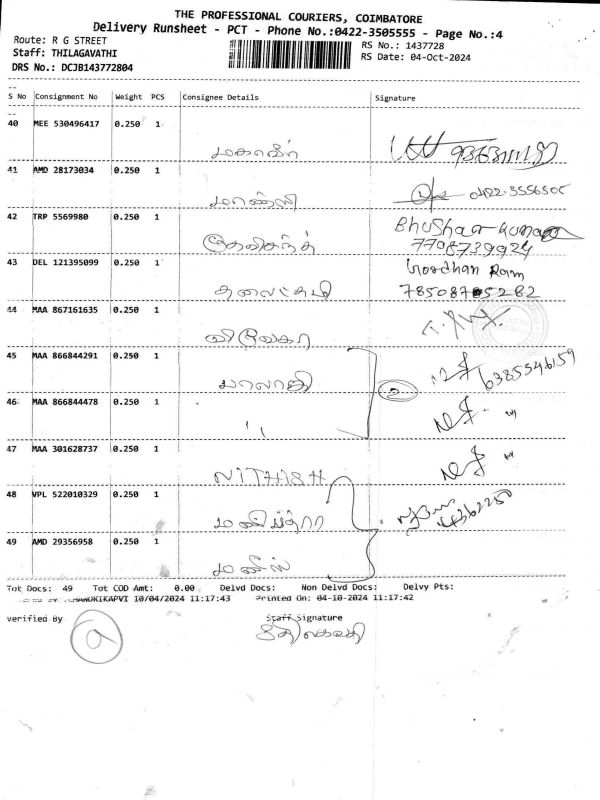 THE PROFESSIONAL COURIERS, COIMBATORE
Delivery Runsheet - PCT - Phone No.:0422-3505555 - Page No.:4
Route: R G STREET
RS No.: 1437728
Staff: THILAGAVATHI
RS Date: 04-Oct-2024
DRS No.: DCJB143772804
S No Consignment No Weight PCS Consignee Details Signature
40 MEE 530496417 0.250 1
மகாவீர்
41 AMD 28173034 0.250 1
மான்ஸி 0422-3556505
42 TRP 5569980 0.250 1
Bhushan Kumar
7708739924
43 DEL 121395099 0.250 1
Gordhan Ram
44 MAA 867161635 0.250 1
45 MAA 866844291 0.250 1
பாலாஜி 6385546159
46 MAA 866844478 0.250 1
47 MAA 301628737 0.250 1
NITHISH
48 VPL 522010329 0.250 1
49 AMD 29356958 0.250 1
Tot Docs: 49 Tot COD Amt: 0.00 Delvd Docs: Non Delvd Docs: Delvy Pts:
10/04/2024 11:17:43 Printed On: 04-10-2024 11:17:42
verified By Staff Signature